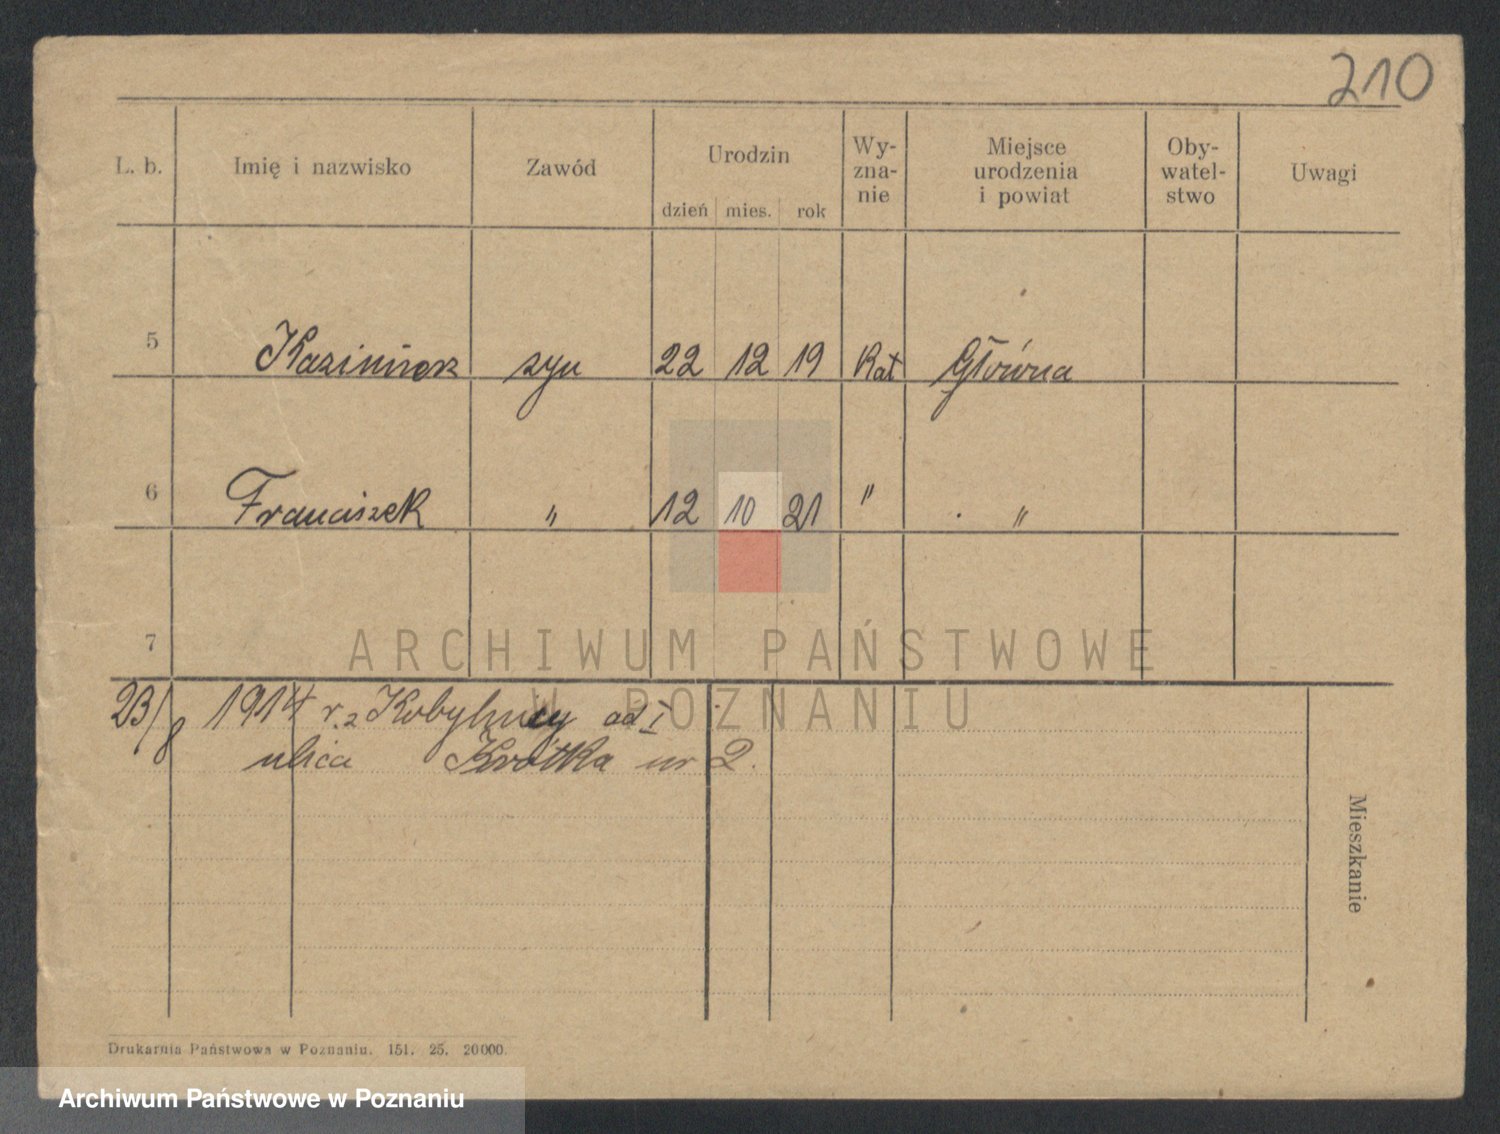 210
L. b. Imię i nazwisko Zawód Urodzin Wy-zna-nie Miejsce urodzenia i powiat Oby-watel-stwo Uwagi
dzień mies. rok
5 Kazimierz syn 22 12 19 Kat Główna
6 Franciszek " 12 10 21 " "
7
ARCHIWUM PAŃSTWOWE
W POZNANIU
23/8 1914 r. z Kobylnicy ad I
ulica Krótka nr 2.
Mieszkanie
Drukarnia Państwowa w Poznaniu. 151. 25. 20000.
Archiwum Państwowe w Poznaniu